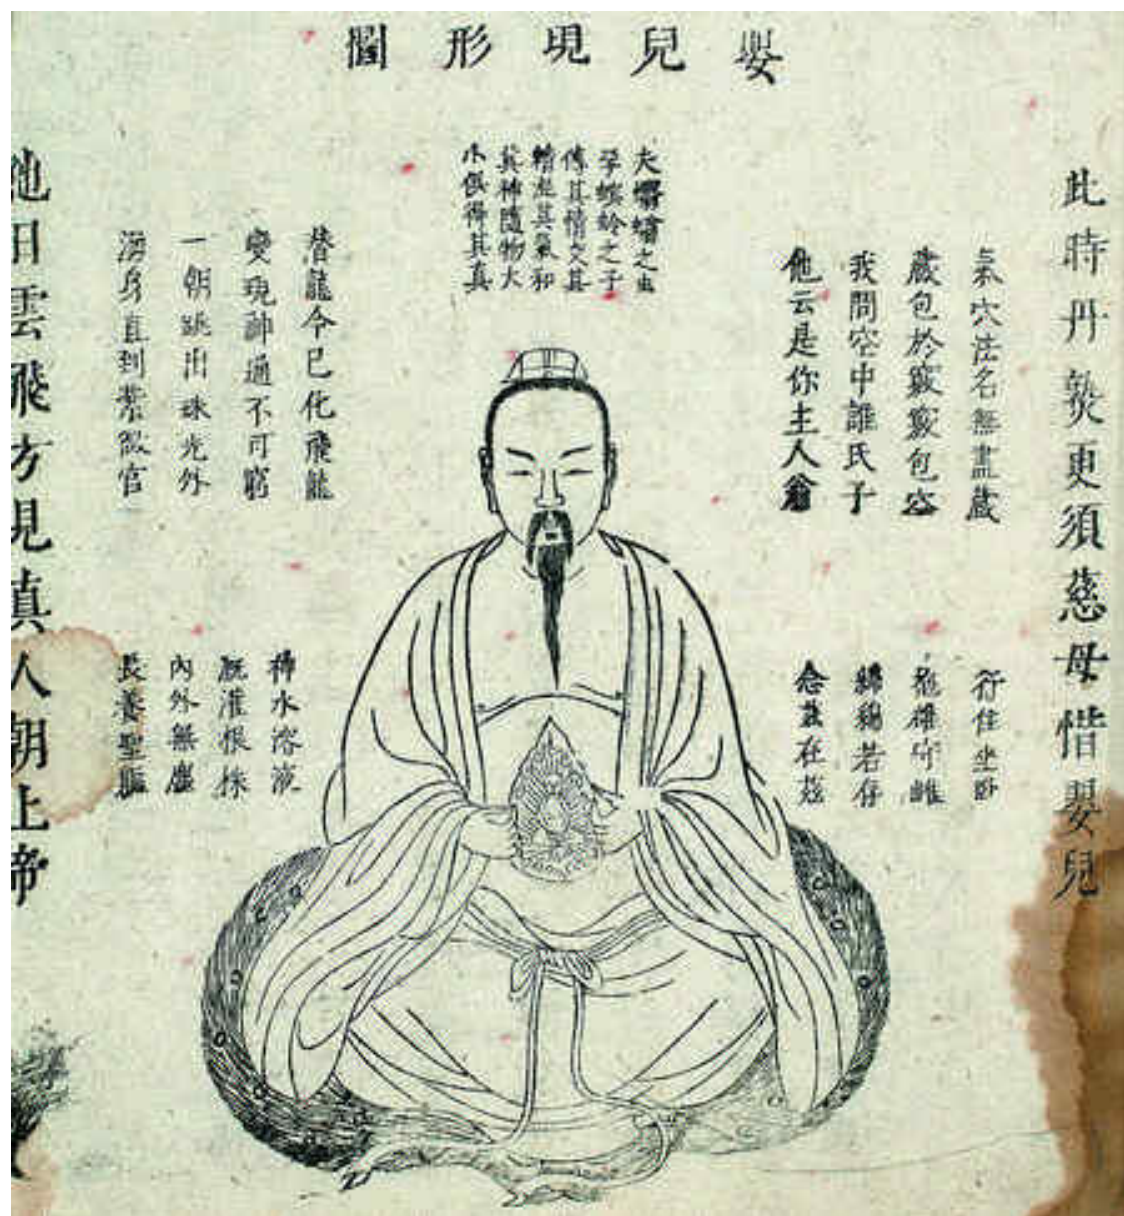 嬰兒現形圖
此時丹熟更須慈母惜嬰兒
氣穴法名無盡藏
藏包於竅竅包空
我問空中誰氏子
他云是你主人翁
行住坐臥
抱雄守雌
綿綿若存
念茲在茲
夫蠮螉之虫
孕螟蛉之子
傳其情交其
精混其氣和
其神隨物大
小俱得其真
昝龍今已化飛龍
變現神通不可窮
一朝跳出珠光外
湧身直到紫微宫
神水溶液
溉灌根株
內外無塵
長養聖胎
他日雲飛方見真人朝上帝